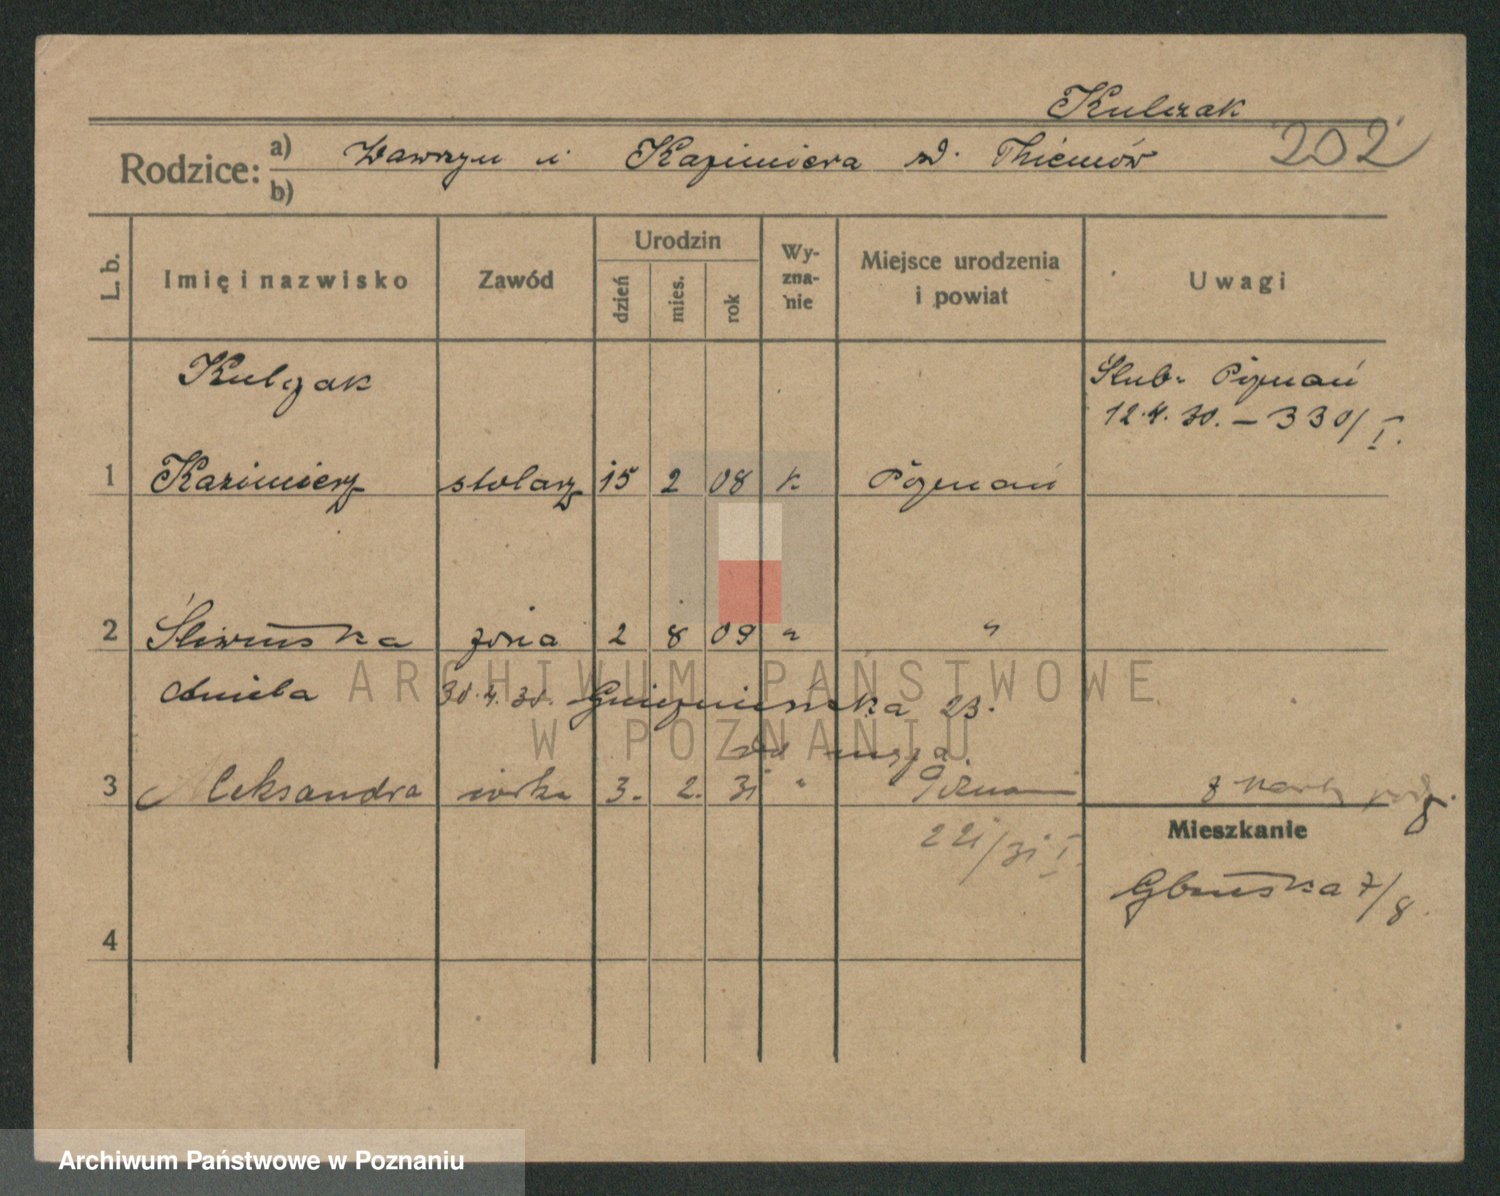 Kulczak
Rodzice: a) Wawrzyn i Kazimiera z d. Thiemów 202
b)
L. b. Imię i nazwisko Zawód Urodzin dzień mies. rok Wyznanie Miejsce urodzenia i powiat Uwagi
Kulczak Ślub. Poznań
12.4.30. – 330/I.
1 Kazimierz stolarz 15 2 08 k Poznań
2 Śliwińska żona 2 8 09 " "
Aniela 30.4.30. Gnieźnieńska 23.
od męża
3 Aleksandra córka 3. 2. 31 " Poznań z karty
221/31 I.
Mieszkanie
7/8
4
ARCHIWUM PAŃSTWOWE
W POZNANIU
Archiwum Państwowe w Poznaniu